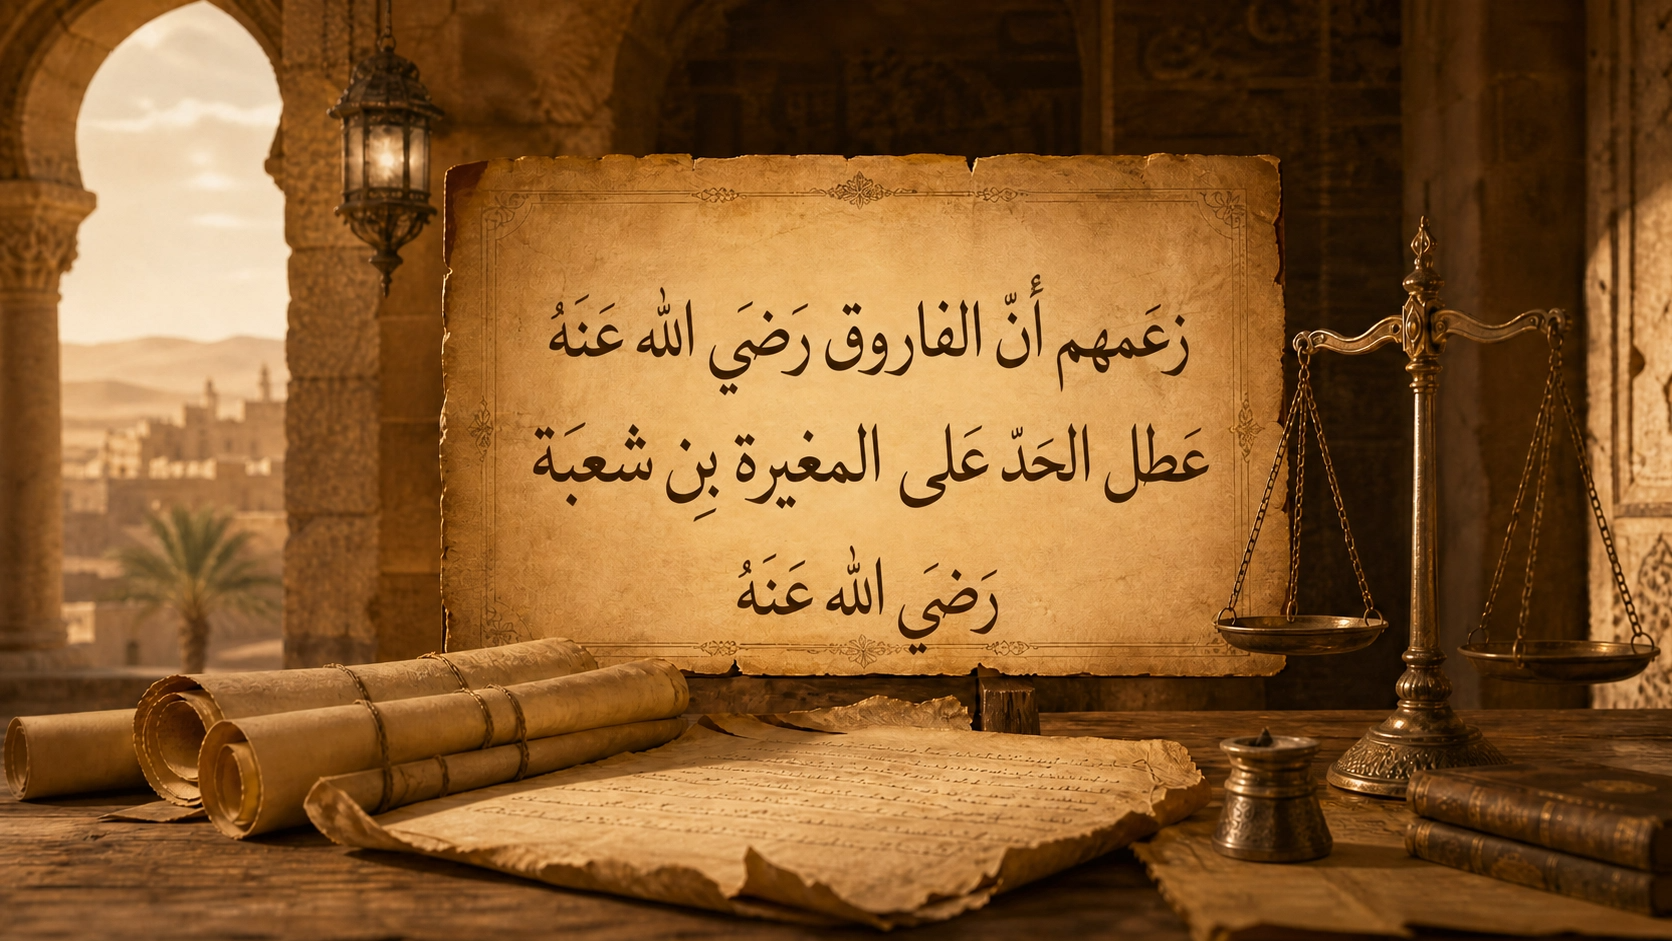 زَعَمهم أَنّ الفاروق رَضيَ الله عَنَهُ
عَطل الحَدّ عَلى المغيرة بِن شعبَة
رَضيَ الله عَنَهُ